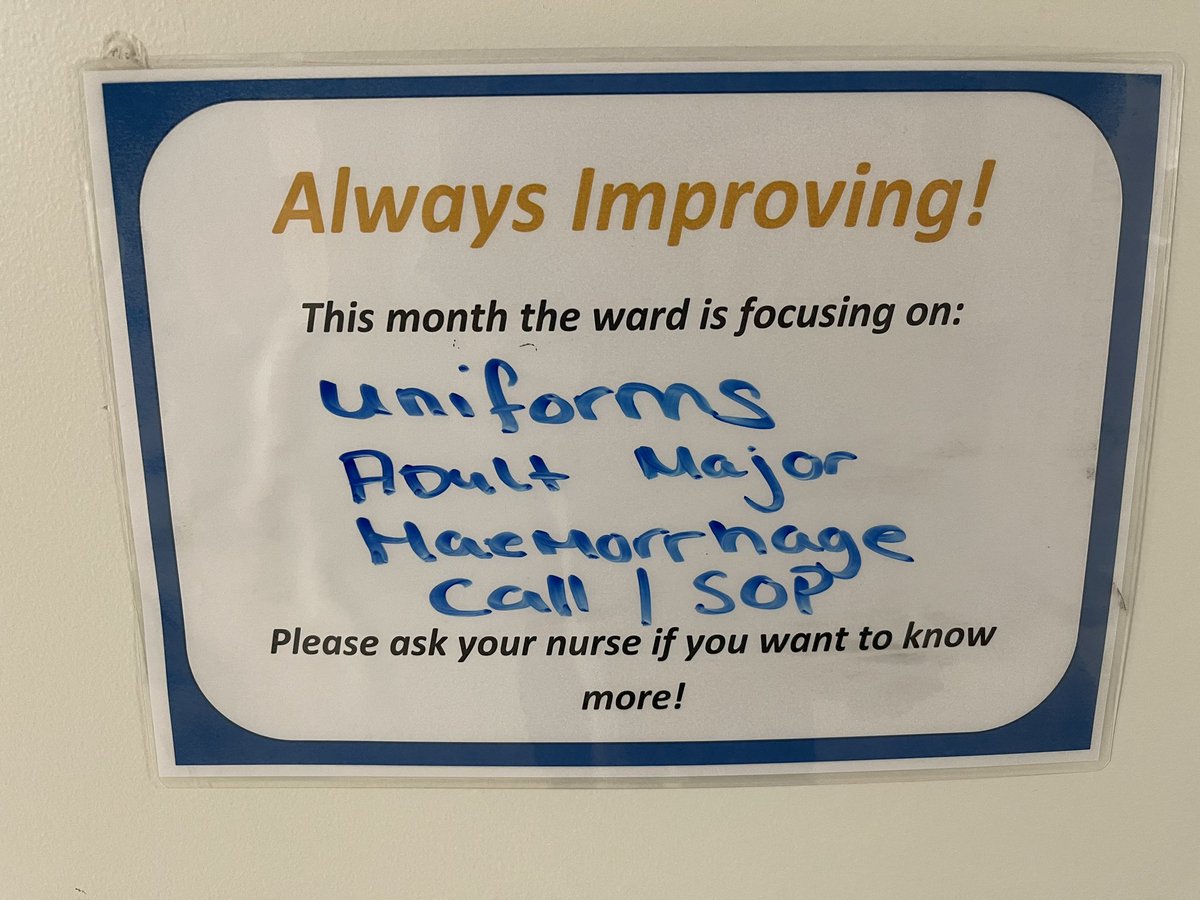 Always Improving!
This month the ward is focusing on:
uniforms
Adult Major
Haemorrhage
Call / SOP
Please ask your nurse if you want to know
more!